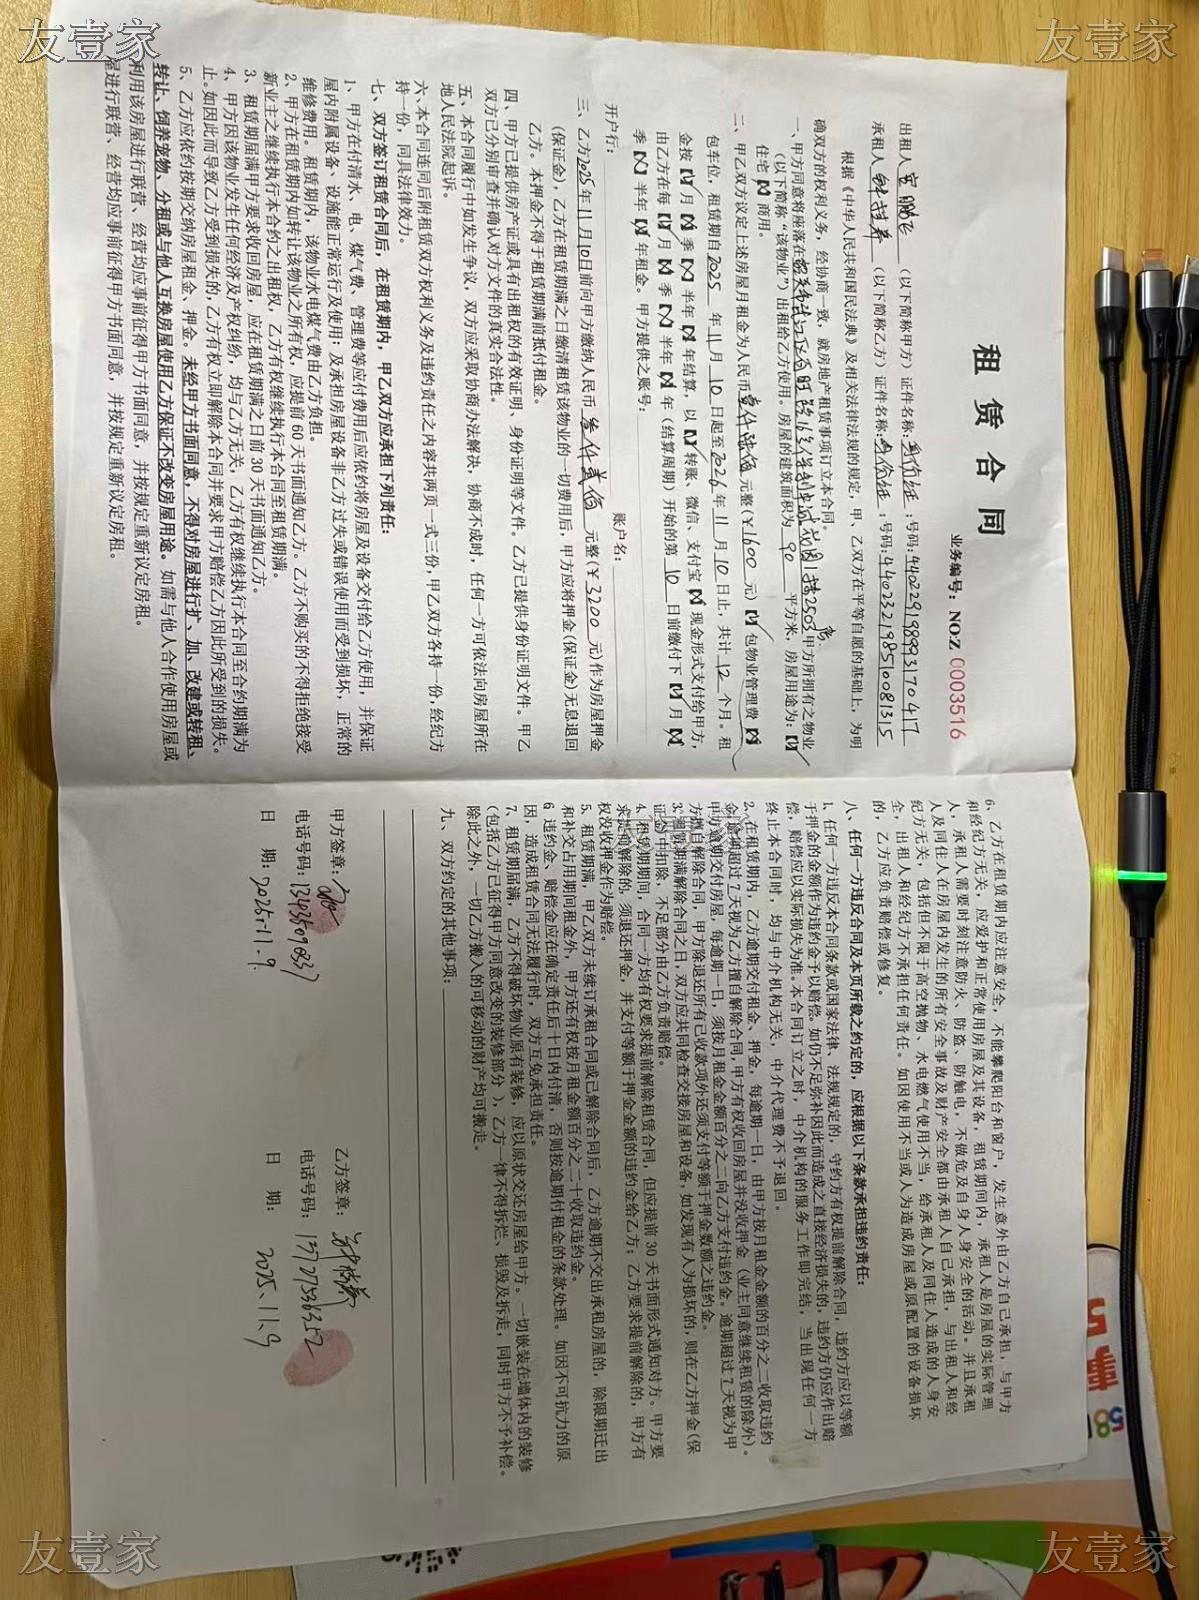 友壹家
友壹家
租赁合同
业务编号：NOZ 0003516
出租人
（以下简称甲方）证件名称：身份证；号码：440229198993170417
承租人
（以下简称乙方）证件名称：身份证；号码：440232198510081315
根据《中华人民共和国民法典》及相关法律法规的规定，甲、乙双方在平等自愿的基础上，为明
确双方的权利义务，经协商一致，就房地产租赁事项订立本合同。
一、甲方同意将座落在 花园1栋2503房 甲方所拥有之物业
（以下简称“该物业”）出租给乙方使用。房屋的建筑面积为 90 平方米，房屋用途为：【√】
住宅【×】商用。
二、甲乙双方议定上述房屋月租金为人民币壹仟陆佰元整(￥1600元)【√】包物业管理费【×】
包车位，租赁期自2025年11月10日起至2026年11月10日止，共计12个月。租
金按【√】月【×】季【×】半年【×】年结算，以【√】转账、微信、支付宝【×】现金形式支付给甲方，
由乙方在每【√】月【×】季【×】半年【×】年（结算周期）开始的第10日前缴付下【√】月【×】
季【×】半年【×】年租金。甲方提供之账号：
开户行：
账户名：
三、乙方2025年11月10日前向甲方缴纳人民币叁仟贰佰元整(￥3200元)作为房屋押金
(保证金)，乙方在租赁期满之日缴清租赁该物业的一切费用后，甲方应将押金(保证金)无息退回
乙方。本押金不得于租赁期满前抵付租金。
四、甲方已提供房产证或具有出租权的有效证明、身份证明等文件。乙方已提供身份证明文件。甲乙
双方已分别审查并确认对方文件的真实合法性。
五、本合同履行中如发生争议，双方应采取协商办法解决，协商不成时，任何一方可依法向房屋所在
地人民法院起诉。
六、本合同连同后附租赁双方权利义务及违约责任之内容共两页一式三份，甲乙双方各持一份，经纪方
持一份，同具法律效力。
七、双方签订租赁合同后，在租赁期内，甲乙双方应承担下列责任：
1、甲方在付清水、电、煤气费、管理费等应付费用后应依约将房屋及设备交付给乙方使用，并保证
屋内附属设备、设施能正常运行及使用；及承担房屋设备非乙方过失或错误使用而受到损坏，正常的
维修费用。租赁期内，该物业水电煤气费由乙方负担。
2、甲方在租赁期内如转让该物业之所有权，应提前60天书面通知乙方。乙方不购买的不得拒绝接受
新业主之继续执行本合约之出租权，乙方有权继续执行本合同至租赁期满。
3、租赁期届满甲方要求收回房屋，应在租赁期满之日前30天书面通知乙方。
4、甲方因该物业发生任何经济及产权纠纷，均与乙方无关，乙方有权继续执行本合同至合约期满为
止。如因此而导致乙方受到损失的，乙方有权立即解除本合同并要求甲方赔偿乙方因此所受到的损失。
5、乙方应依约按期交纳房屋租金、押金。未经甲方书面同意，不得对房屋进行扩、加、改建或转租、
转让、饲养宠物、分租或与他人互换房屋使用乙方保证不改变房屋用途。如需与他人合作使用房屋或
利用该房屋进行联营、经营均应事前征得甲方书面同意，并按规定重新议定房租。
屋进行联营、经营均应事前征得甲方书面同意，并按规定重新议定房租。
6、乙方在租赁期内应注意安全，不能攀爬阳台和窗户，发生意外由乙方自己承担，与甲方
和经纪方无关，应爱护和正常使用房屋及其设备，租赁期间内，承租人是房屋的实际管理
人，承租人需要时刻注意防火、防盗、防触电，不做危及自身人身安全的活动。并且承租
人及同住人在房屋内发生的所有安全事故及财产安全都由承租人自己承担，与出租人和经
纪方无关，包括但不限于高空抛物、水电燃气使用不当，给承租人及同住人造成的人身安
全，出租人和经纪方不承担任何责任。如因使用不当或人为造成房屋或原配置的设备损坏
的，乙方应负责赔偿或修复。
八、任何一方违反合同及本页所载之约定的，应根据以下条款承担违约责任：
1、任何一方违反本合同条款或国家法律、法规规定的，守约方有权提前解除合同，违约方应以等额
于押金的金额作为违约金予以赔偿。如仍不足弥补因此而造成之直接经济损失的，违约方仍应作出赔
偿，赔偿应以实际损失为准。本合同订立之时，中介机构的服务工作即完结，当出现任何一方
终止本合同时，均与中介机构无关，中介代理费不予退回。
2、在租赁期内，乙方逾期交付租金、押金，每逾期一日，由甲方按月租金金额的百分之二收取违约
金，逾期超过7天视为乙方擅自解除合同，甲方有权收回房屋并没收押金（业主同意继续租赁的除外）。
甲方逾期交付房屋，每逾期一日，须按月租金金额百分之二向乙方支付违约金。逾期超过7天视为甲
方擅自解除合同，甲方除退还所有已收款项外还须支付等额于押金数额之违约金。
3、租赁期满解除合同之日，双方应共同检查交接房屋和设备，如发现有人为损坏的，则在乙方押金(保
证金)中扣除，不足部分由乙方负责赔偿。
4、租赁期期间，合同一方均有权要求提前解除租赁合同，但应提前30天书面形式通知对方。甲方要
求提前解除的，须退还押金，并支付等额于押金金额的违约金给乙方；乙方要求提前解除的，甲方有
权没收押金作为赔偿。
5、租赁期满，甲乙双方未续订承租合同或已解除合同后，乙方逾期不交出承租房屋的，除限期迁出
和补交占用期间租金外，甲方还有权按月租金额百分之二十收取违约金。
6 违约金、赔偿金应在确定责任后十日内付清，否则按逾期付租金的条款处理。如因不可抗力的原
因，造成租赁合同无法履行时，双方互免承担责任。
7、租赁期届满，乙方不得破坏物业原有装修，应以原状交还房屋给甲方。一切嵌装在墙体内的装修
(包括乙方已征得甲方同意改变的装修部分），乙方一律不得拆烂、损毁及拆走，同时甲方不予补偿。
除此之外，一切乙方搬入的可移动的财产均可搬走。
九、双方约定的其他事项：
甲方签章：
乙方签章：
电话号码：
电话号码：
日 期：2025.11.9.
日 期：2025、11.9
友壹家
友壹家